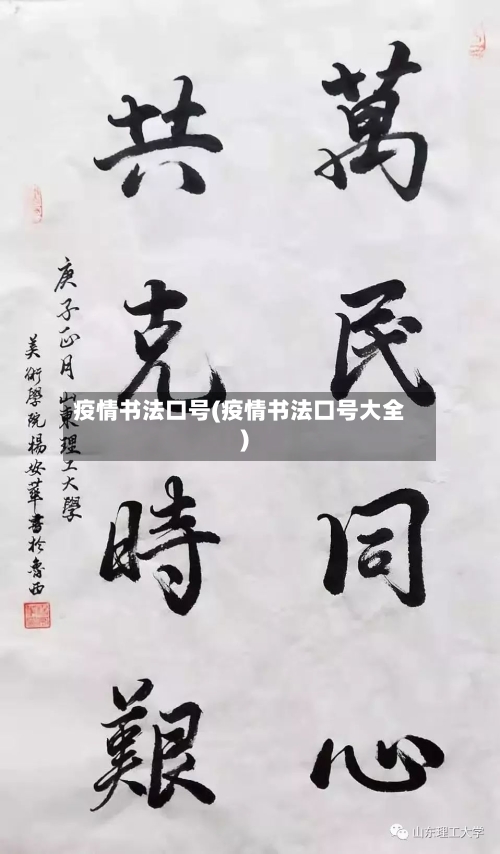 萬民同心
共克時艱
庚子正月山東理工大學
美術學院楊安華書於魯西
疫情书法口号(疫情书法口号大全
)
山东理工大学